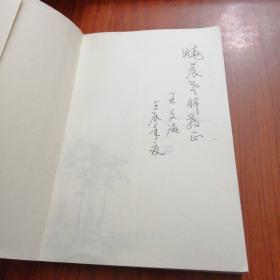 晓晨老师教正
王文海
壬辰年夏